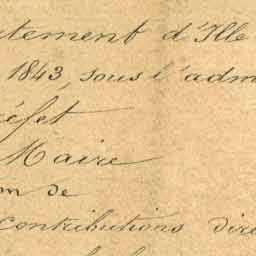 tement d'Ille
1843, sous l'adm
éfet
Maire
m de
contributions dire